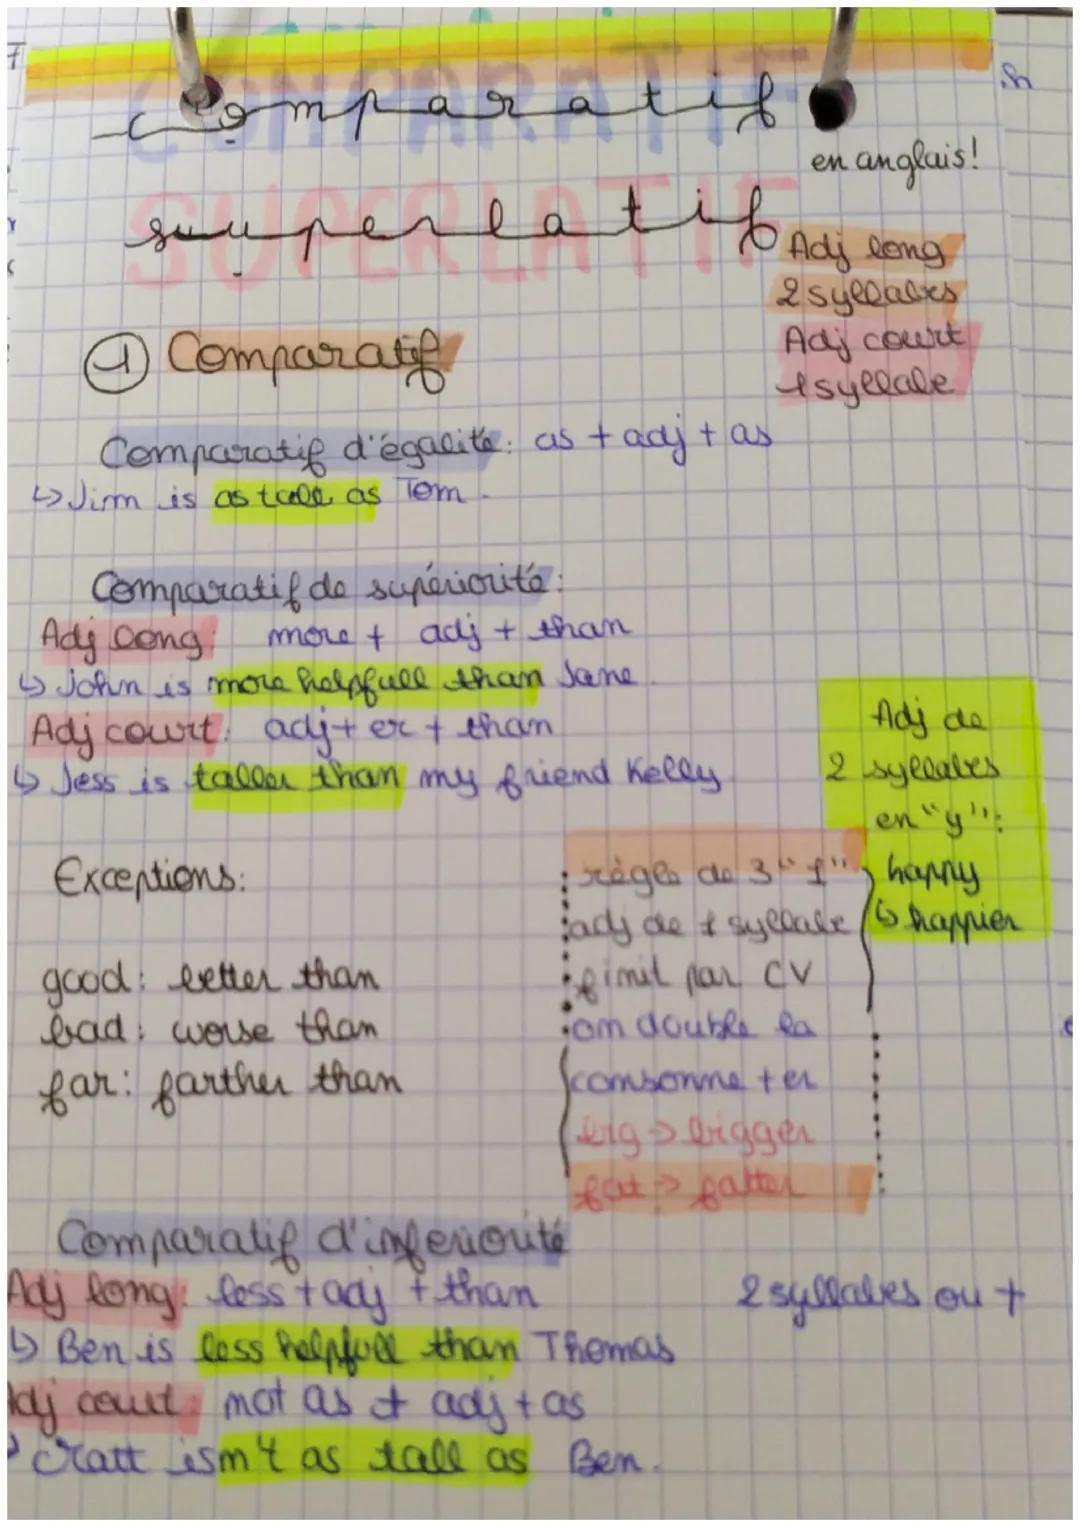 COMPARATIF
comparatif
en anglais!
SUPERLATIF
superlatif
Adj long
2 syllabes
Adj court
1 syllabe
① Comparatif
Comparatif d'égalité: as + adj + as
↳ Jim is as tall as Tom.
Comparatif de supériorité:
Adj long: more + adj + than
↳ John is more helpfull than Jane.
Adj court: adj + er + than
↳ Jess is taller than my friend Kelly
Adj de
2 syllabes
en "y":
happy
↳ happier
Exceptions:
good: better than
bad: worse than
far: farther than
règle de 3 "1"
adj de 1 syllabe
finit par CV
on double la
consonne + er
big → bigger
fat → fatter
Comparatif d'inferiorité
Adj long: less + adj + than
2 syllabes ou +
↳ Ben is less helpfull than Thomas
Adj court: not as + adj + as
isn't as tall as Ben.